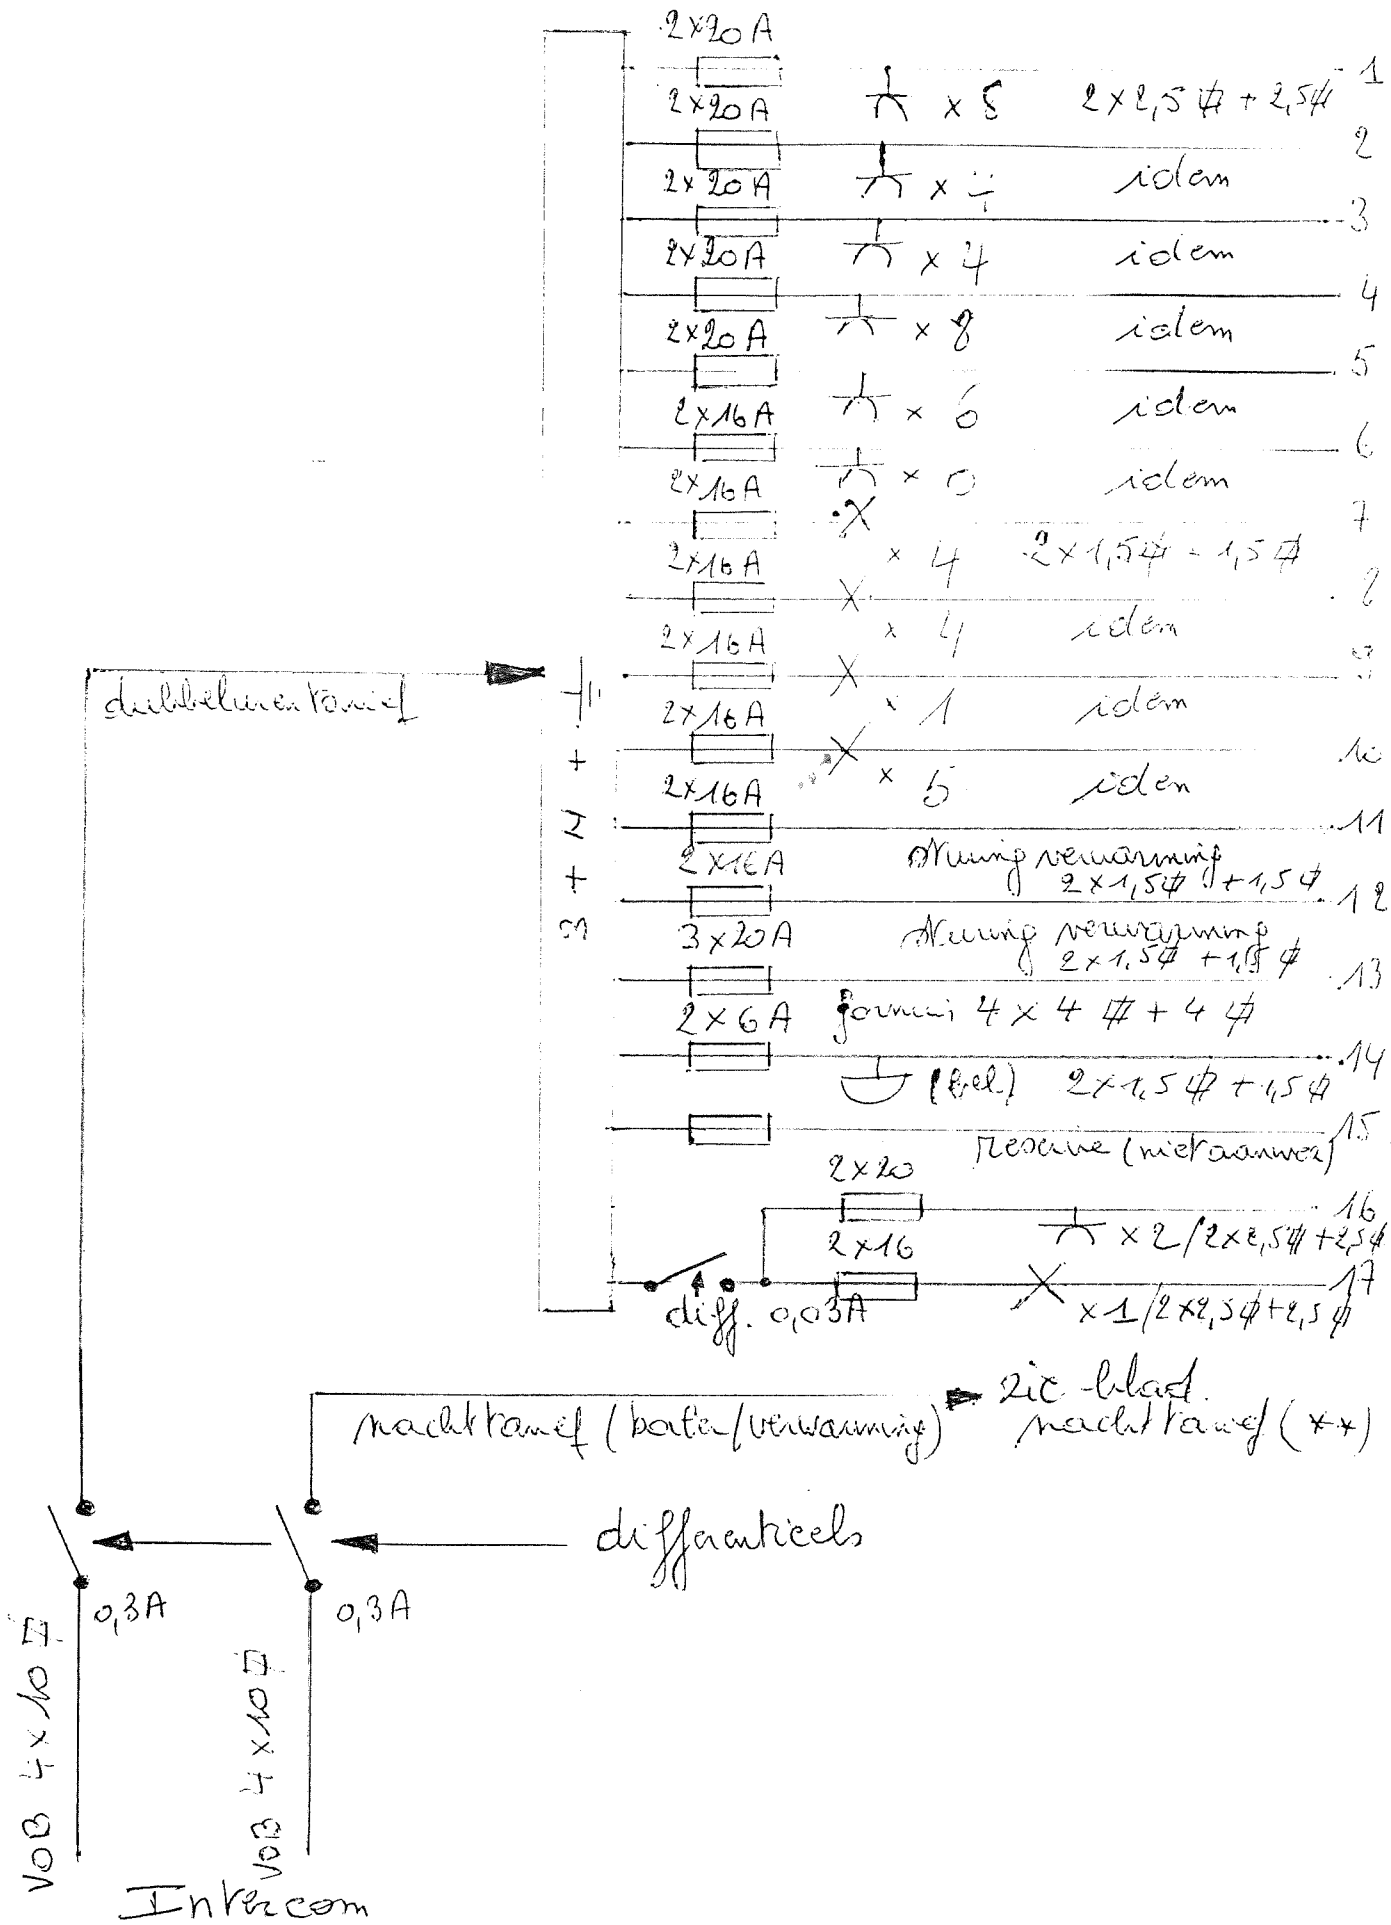 2×20A
1
× 5 2×2,5⌀ + 2,5⌀
2×20A
2
idem
2×20A
3
× 4 idem
2×20A
4
× 8 idem
2×20A
5
× 6 idem
2×16A
6
× 0 idem
2×16A
7
× 4 2×1,5⌀ - 1,5⌀
2×16A
8
× 4 idem
2×16A
9
× 1 idem
2×16A
10
× 5 idem
2×16A
11
sturing verwarming
2×1,5⌀ + 1,5⌀
2×16A
12
sturing verwarming
2×1,5⌀ + 1,5⌀
3×20A
13
4 × 4 ⌀ + 4 ⌀
2×6A
14
(bel) 2×1,5⌀ + 1,5⌀
15
reserve (niet aanwez)
2×20
16
×2/2×2,5⌀+2,5⌀
2×16
17
×1/2×2,5⌀+2,5⌀
diff. 0,03A
dubbeluurtarief
3 + N +
nachttarief (boiler/verwarming)
zie blad
nachttarief (**)
differentieels
0,3A
0,3A
VOB 4×10⌀
VOB 4×10⌀
Intercom